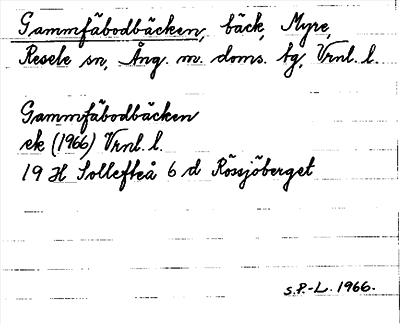 Gammfäbodbäcken, bäck, Myre,
Resele sn, Ång. m. doms. bg, Vrnl. l.
Gammfäbodbäcken
ek (1966) Vrnl. l.
19 H Sollefteå 6 d Rössjöberget
s.P.-L. 1966.